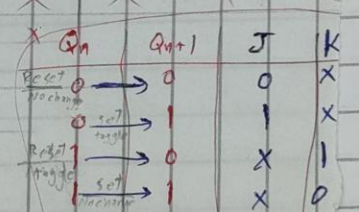 x Qn Qn+1 J K
Reset
No change 0 → 0 0 X
0 set
toggle → 1 1 X
Reset
toggle 1 → 0 X 1
1 set
No change → 1 X 0